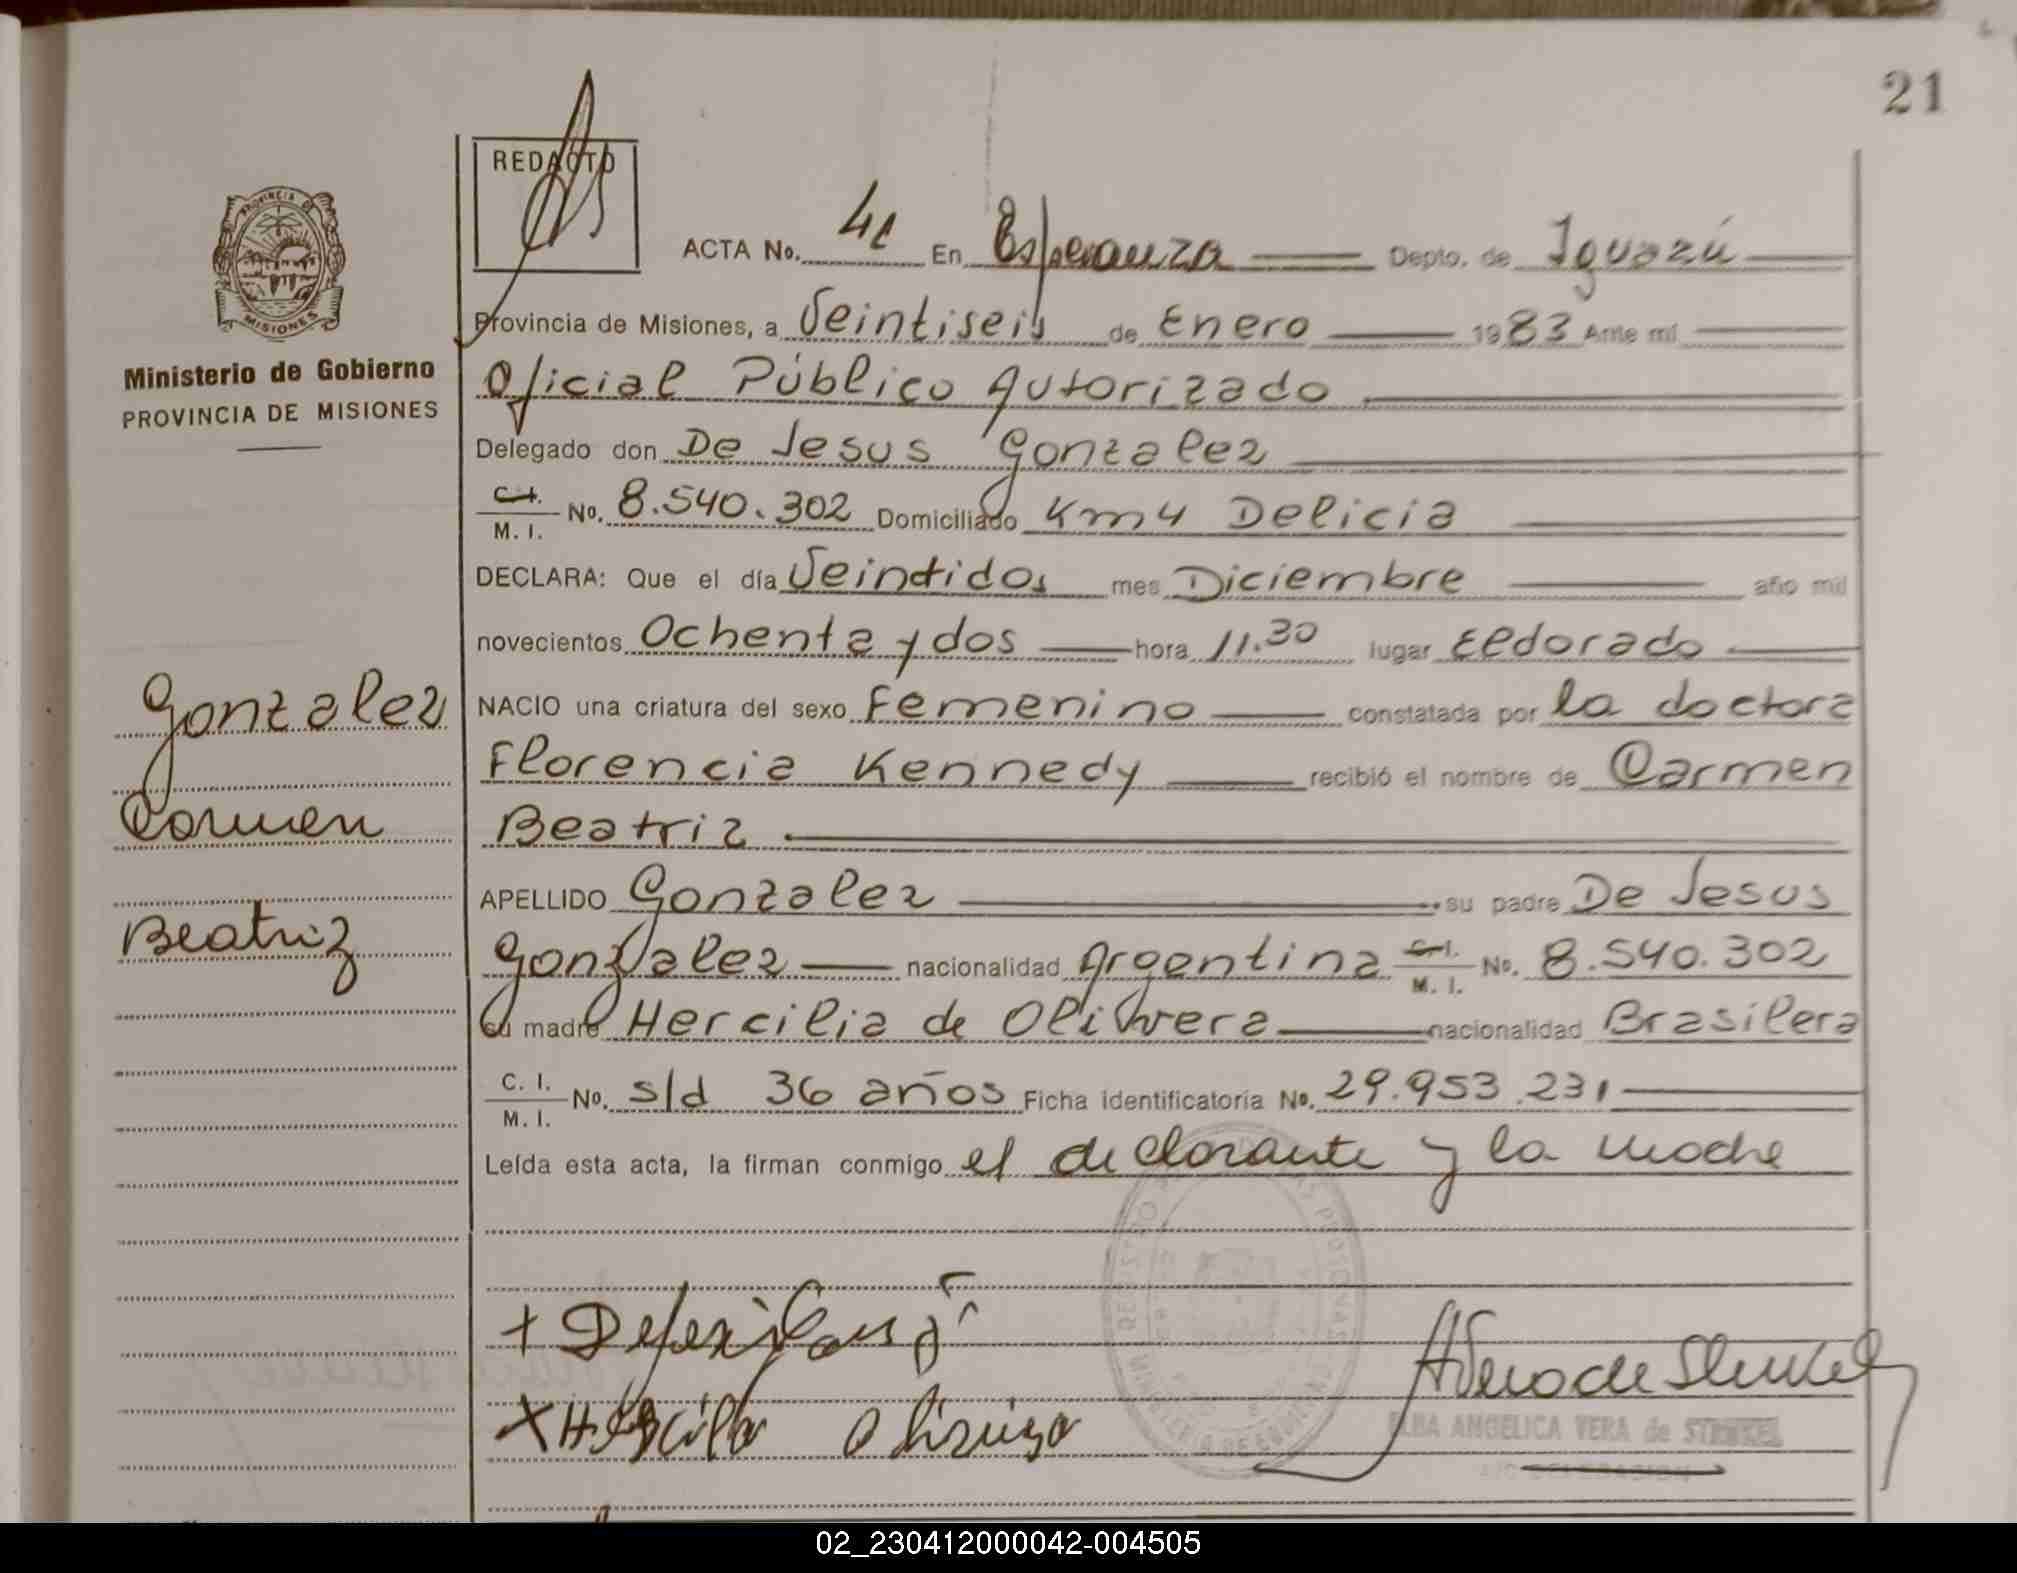 21
REDACTO
PROVINCIA DE
MISIONES
Ministerio de Gobierno
PROVINCIA DE MISIONES
ACTA No. 41 En Esperanza Depto. de Iguazú
Provincia de Misiones, a Veintiseis de Enero 1983 Ante mí
Oficial Público Autorizado
Delegado don De Jesus Gonzalez
C. I. / M. I. No. 8.540.302 Domiciliado Km 4 Delicia
DECLARA: Que el día Veintidos mes Diciembre año mil
novecientos Ochenta y dos hora 11.30 lugar Eldorado
NACIO una criatura del sexo Femenino constatada por la doctora
Florencia Kennedy recibió el nombre de Carmen
Beatriz
APELLIDO Gonzalez su padre De Jesus
Gonzalez nacionalidad Argentina C. I. / M. I. No. 8.540.302
su madre Hercilia de Olivera nacionalidad Brasilera
C. I. / M. I. No. s/d 36 años Ficha identificatoria No. 29.953.231
Leída esta acta, la firman conmigo el declarante y la madre
Gonzalez
Carmen
Beatriz
ELBA ANGELICA VERA de STENKEL
02_230412000042-004505